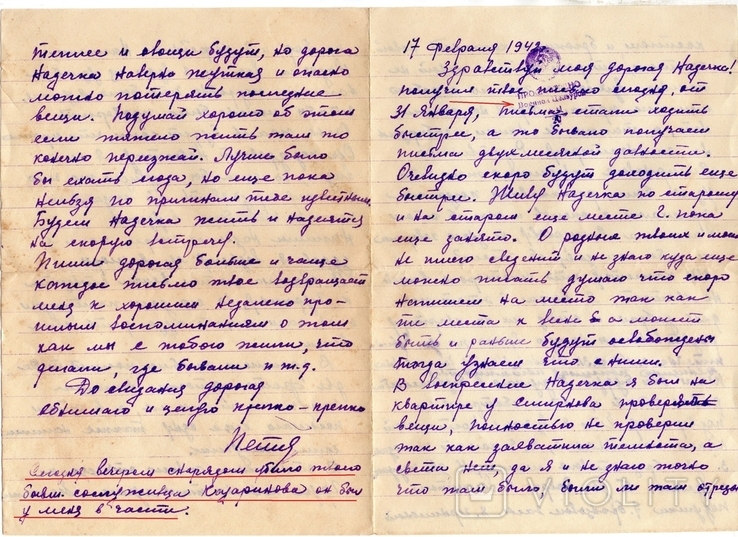 17 Февраля 194
Здравствуй моя дорогая Надечка!
получил твое письмо сегодня, от
31 Января, письма стали ходить
быстрее, а то бывало получаем
письма двухмесячной давности.
Очевидно скоро будут доходить еще
быстрее. Живу Надечка по старому
и на старом еще месте Г. пока
еще занято. О родных твоих и моих
не имею сведений и не знаю куда еще
можно писать думаю что скоро
напишем на место так как
те места к весне а может
быть и раньше будут освобождены
тогда узнаем что с ними.
В воскресение Надечка я был на
квартире у Смирнова проверять
вещи. Полностью не проверил
так как захватила темнота, а
света нет, да я и не знаю точно
что там было, были ли там отрезы
теплее и овощи будут, но дорога
Надечка наверно жуткая и опасно
можно потерять последние
вещи. Подумай хорошо об этом
если тяжело жить там то
конечно переезжай. Лучше было
бы ехать сюда, но еще пока
нельзя по причинам тебе известным
Будем Надечка жить и надеятся
на скорую встречу.
Пиши дорогая больше и чаще
каждое письмо твое возвращает
меня к хорошим недалеко про-
шлым воспоминаниям о том
как мы с тобой жили, что
делали, где бывали и т.д.
До свидания дорогая
обнимаю и целую крепко-крепко
Петя
Сегодня вечером снарядом убило твоего
бывш. сослуживца Кацаринова он был
у меня в части.
VIOLITY